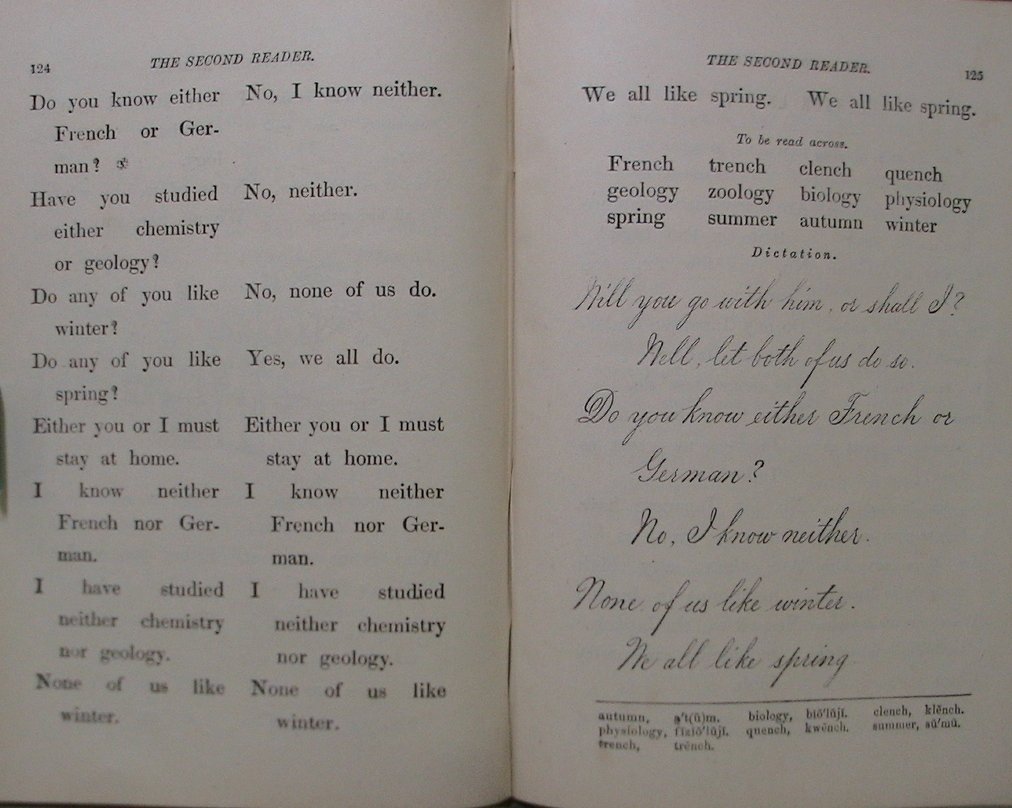 124
THE SECOND READER.
Do you know either
French or Ger-
man?
Have you studied
either chemistry
or geology?
Do any of you like
winter?
Do any of you like
spring?
Either you or I must
stay at home.
I know neither
French nor Ger-
man.
I have studied
neither chemistry
nor geology.
None of us like
winter.
No, I know neither.
No, neither.
No, none of us do.
Yes, we all do.
Either you or I must
stay at home.
I know neither
French nor Ger-
man.
I have studied
neither chemistry
nor geology.
None of us like
winter.
THE SECOND READER.
125
We all like spring. We all like spring.
To be read across.
French trench clench quench
geology zoology biology physiology
spring summer autumn winter
Dictation.
Will you go with him, or shall I?
Well, let both of us do so.
Do you know either French or
German?
No, I know neither.
None of us like winter.
We all like spring
autumn, biology, bīŏ'lŭjĭ. clench, klĕnch.
physiology, fĭzĭŏ'lŭjĭ. quench, kwĕnch. summer, sŭ'mŭ.
trench, trĕnch.